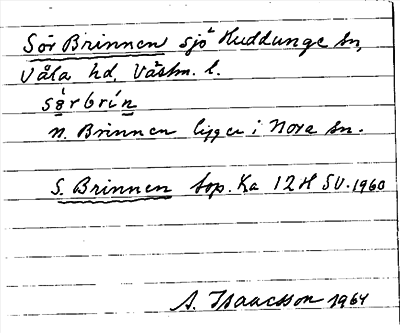 Sör Brinnen sjö Huddunge sn,
Våla hd, Västm. l.
sö́rbrín
N. Brinnen ligger i Nora sn.
S. Brinnen top. Ka 12 H SV. 1960
A. Isaacsson 1964